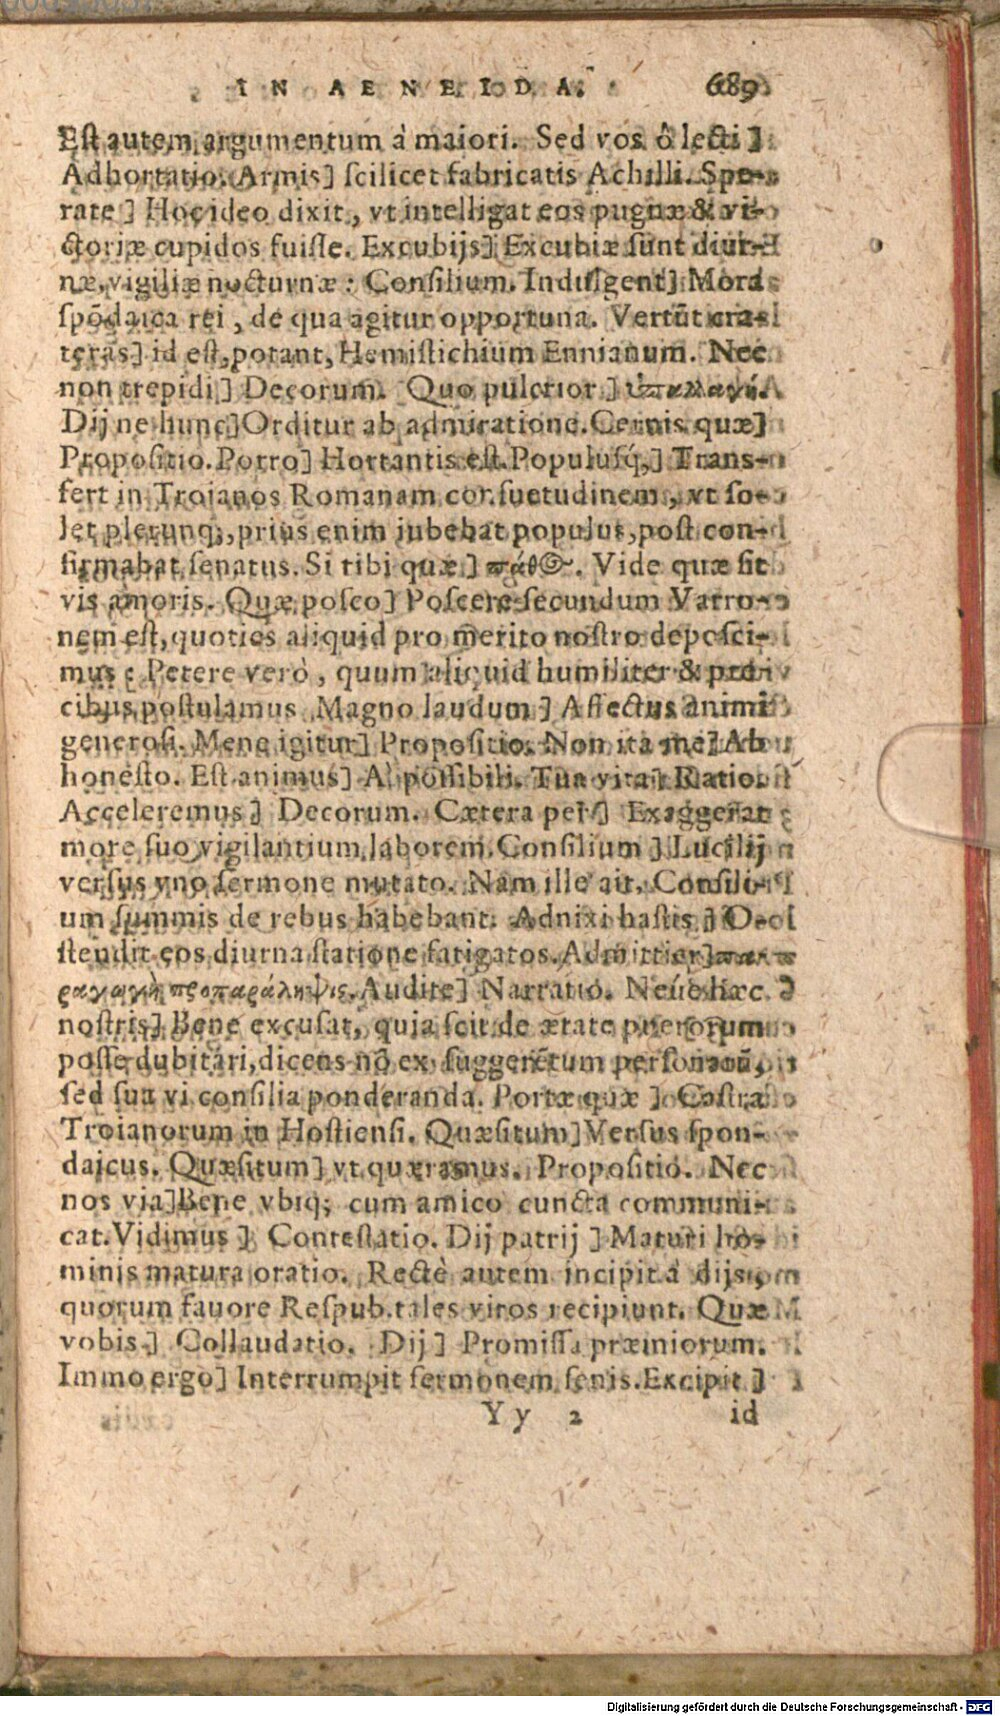 IN AENEIDA. 689
Est autem argumentum à maiori. Sed vos ô lecti]
Adhortatio. Armis] scilicet fabricatis Achilli. Spe-
rate] Hoc ideo dixit, vt intelligat eos pugnæ & vi-
ctoriæ cupidos fuisse. Excubijs] Excubiæ sunt diur-
næ, vigiliæ nocturnæ: Consilium. Indulgent] Mora
spōdaica rei, de qua agitur opportuna. Vertūt cra-
teras] id est, potant, Hemistichium Ennianum. Nec
non trepidi] Decorum. Quo pulcrior] ὑπαλλαγή.
Dij ne hunc] Orditur ab admiratione. Cernis quæ]
Propositio. Porro] Hortantis est. Populusq́;] Trans-
fert in Troianos Romanam consuetudinem, vt so-
let plerunq;, prius enim iubebat populus, post con-
firmabat senatus. Si tibi quæ] πάθος. Vide quæ sit
vis amoris. Quæ posco] Poscere secundum Varro-
nem est, quoties aliquid pro merito nostro deposci-
mus: Petere verò, quum aliquid humiliter & pre-
cibus postulamus. Magno laudum] Affectus animi
generosi. Mene igitur] Propositio. Non ita me] Ab
honesto. Est animus] A possibili. Tua vita] Ratio.
Acceleremus] Decorum. Cætera per] Exaggerat
more suo vigilantium laborem. Consilium] Lucilij
versus vno sermone mutato. Nam ille ait, Consili-
um summis de rebus habebant. Adnixi hastis] O-
stendit eos diurna statione fatigatos. Admittier] πα-
ραγωγὴ προπαράληψις. Audite] Narratio. Neúe hæc
nostris] Bene excusat, quia scit de ætate puerorum
posse dubitari, dicens nō ex suggerētum personarū,
sed sua vi consilia ponderanda. Portæ quæ] Castra
Troianorum in Hostiensi. Quæsitum] Versus spon-
daicus. Quæsitum] vt quæramus. Propositio. Nec
nos via] Bene vbiq; cum amico cuncta communi-
cat. Vidimus] Contestatio. Dij patrij] Maturi ho-
minis matura oratio. Rectè autem incipit à dijs,
quorum fauore Respub. tales viros recipiunt. Quæ
vobis] Collaudatio. Dij] Promissa præmiorum.
Immo ergo] Interrumpit sermonem senis. Excipit]
Yy 2 id
Digitalisierung gefördert durch die Deutsche Forschungsgemeinschaft - DFG